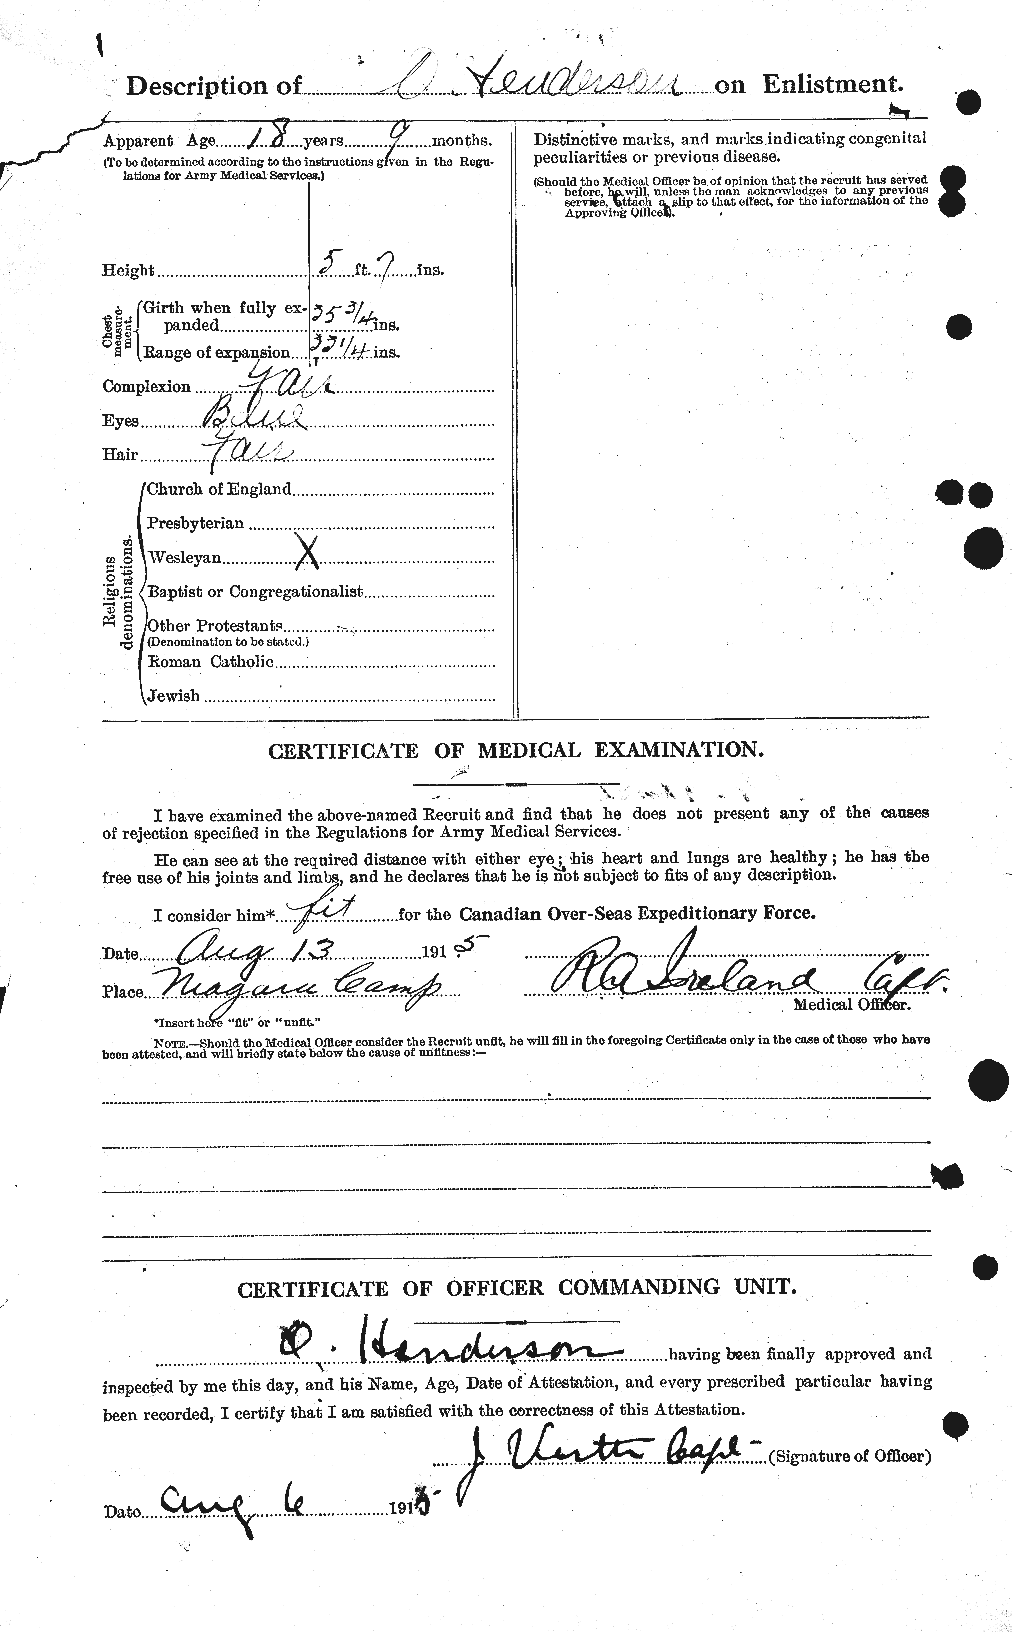 Description of O Henderson on Enlistment.
Apparent Age 18 years 9 months.
(To be determined according to the instructions given in the Regu-
lations for Army Medical Services.)
Height 5 ft. 7 ins.
Chest measure-ment.
Girth when fully ex-
panded 35 3/4 ins.
Range of expansion 33 1/4 ins.
Complexion Fair
Eyes Blue
Hair Fair
Religious denominations.
Church of England
Presbyterian
Wesleyan X
Baptist or Congregationalist
Other Protestants
(Denomination to be stated.)
Roman Catholic
Jewish
Distinctive marks, and marks indicating congenital
peculiarities or previous disease.
(Should the Medical Officer be of opinion that the recruit has served
before, he will, unless the man acknowledges to any previous
service, attach a slip to that effect, for the information of the
Approving Officer).
CERTIFICATE OF MEDICAL EXAMINATION.
I have examined the above-named Recruit and find that he does not present any of the causes
of rejection specified in the Regulations for Army Medical Services.
He can see at the required distance with either eye; his heart and lungs are healthy; he has the
free use of his joints and limbs, and he declares that he is not subject to fits of any description.
I consider him* fit for the Canadian Over-Seas Expeditionary Force.
Date Aug 13 1915
Place Niagara Camp
R A Ireland Capt.
Medical Officer.
*Insert here "fit" or "unfit."
NOTE.—Should the Medical Officer consider the Recruit unfit, he will fill in the foregoing Certificate only in the case of those who have
been attested, and will briefly state below the cause of unfitness:—
CERTIFICATE OF OFFICER COMMANDING UNIT.
O. Henderson having been finally approved and
inspected by me this day, and his Name, Age, Date of Attestation, and every prescribed particular having
been recorded, I certify that I am satisfied with the correctness of this Attestation.
J Capt (Signature of Officer)
Date Aug 6 1915